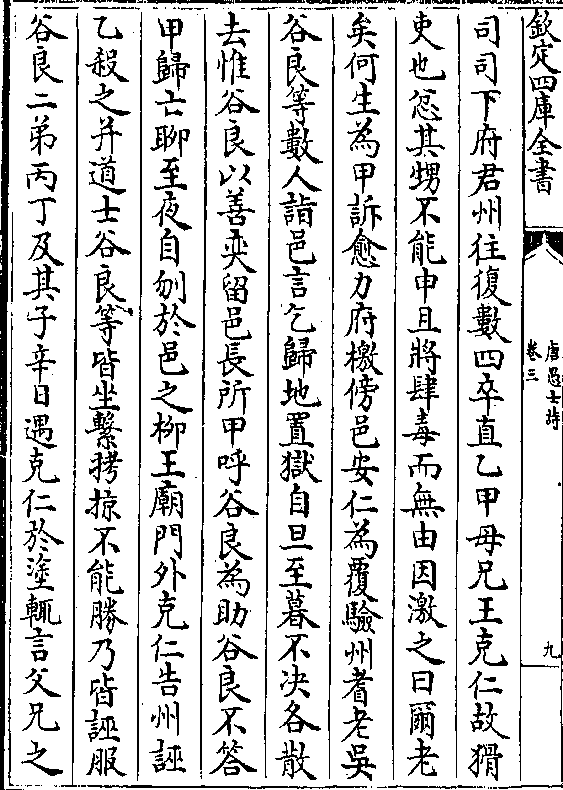 欽定四庫全書
唐愚士詩
卷三
九
司司下府君州往復數四卒直乙甲母兄王克仁故猾
吏也忿其甥不能申且將肆毒而無由因激之曰爾老
矣何生為甲訴愈力府檄傍邑安仁為覆驗州耆老吳
谷良等數人詣邑言乞歸地置獄自旦至暮不决各散
去惟谷良以善奕留邑長所甲呼谷良為助谷良不答
甲歸亡聊至夜自刎於邑之柳王廟門外克仁告州誣
乙殺之并道士谷良等皆坐繫拷掠不能勝乃皆誣服
谷良二弟丙丁及其子辛日遇克仁於塗輒言父兄之